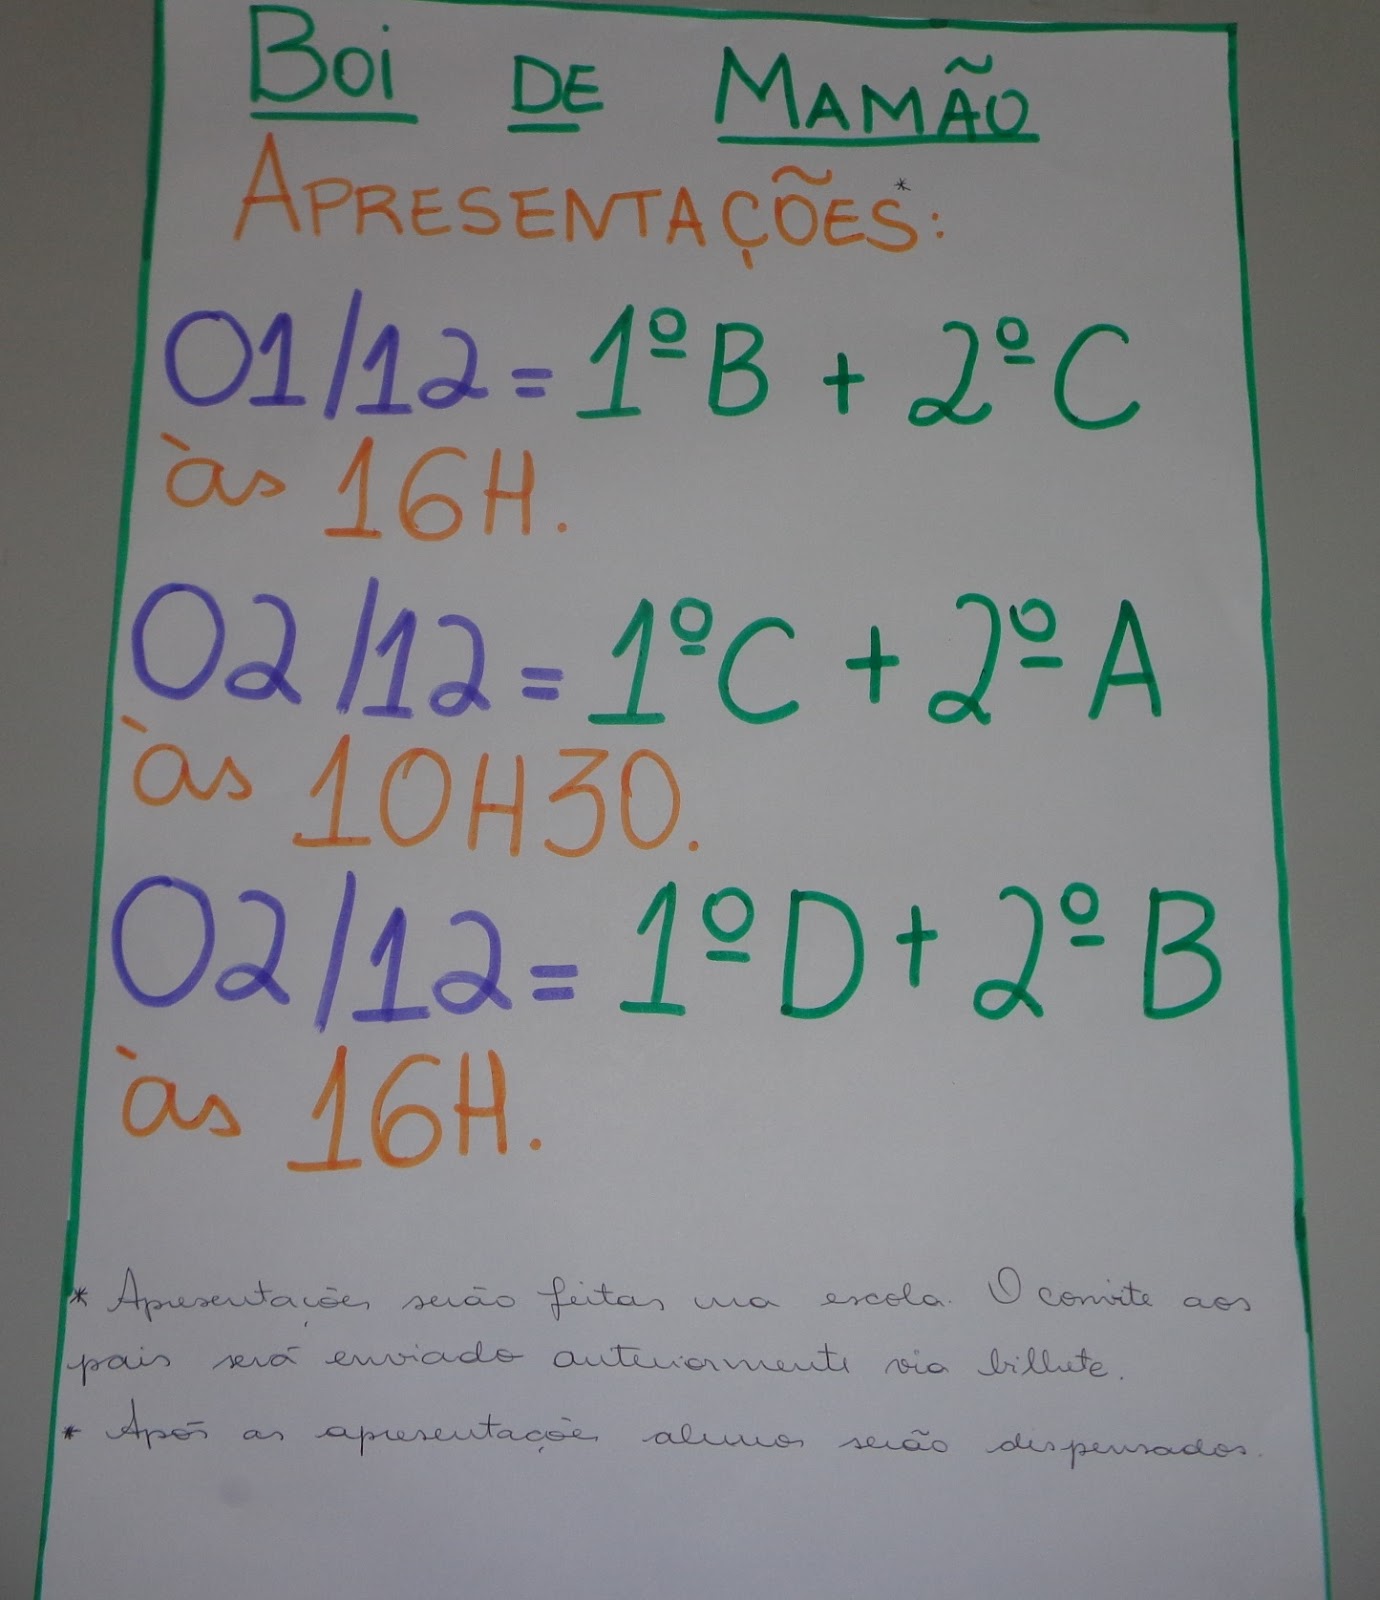 BOI DE MAMÃO
APRESENTAÇÕES*:
01/12 = 1º B + 2º C
às 16H.
02/12 = 1º C + 2º A
às 10H30.
02/12 = 1º D + 2º B
às 16H.
* Apresentações serão feitas na escola. O convite aos
pais será enviado anteriormente via bilhete.
* Após as apresentações alunos serão dispensados.